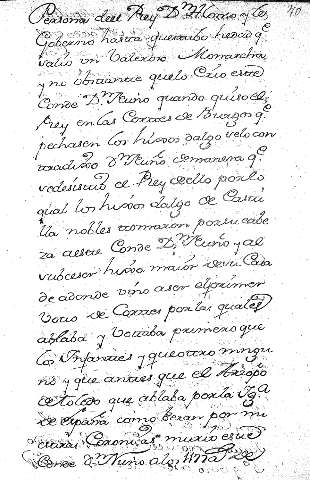 40
Persona del Rey D.n Alonso y les
Goberno hasta que tubo hedad q.e
salio un Valeroso Monarcha
y no obstante que lo Crio este
Conde D.n Nuño quando quiso el
Rey en las Cortes de Burgos q.e
pechasen los hixos dalgo velo con
tradixo D.n Nuño demanera q.e
se desistio el Rey de ello por lo
qual los hixos dalgo de Casti
lla nobles tomaron por su cabe
za a este Conde D.n Nuño y al
subcesor hixo maior de su Casa
de adonde vino a ser el primer
Voto de Cortes por la qual
ablaba y Votaba primero que
los Infantes y que otro ningu
no y que antes que el Arzpo
de Toledo que ablaba por la Yg.a
de España como beran por mu
chas Coronicas murio este
Conde D.n Nuño a los 1177